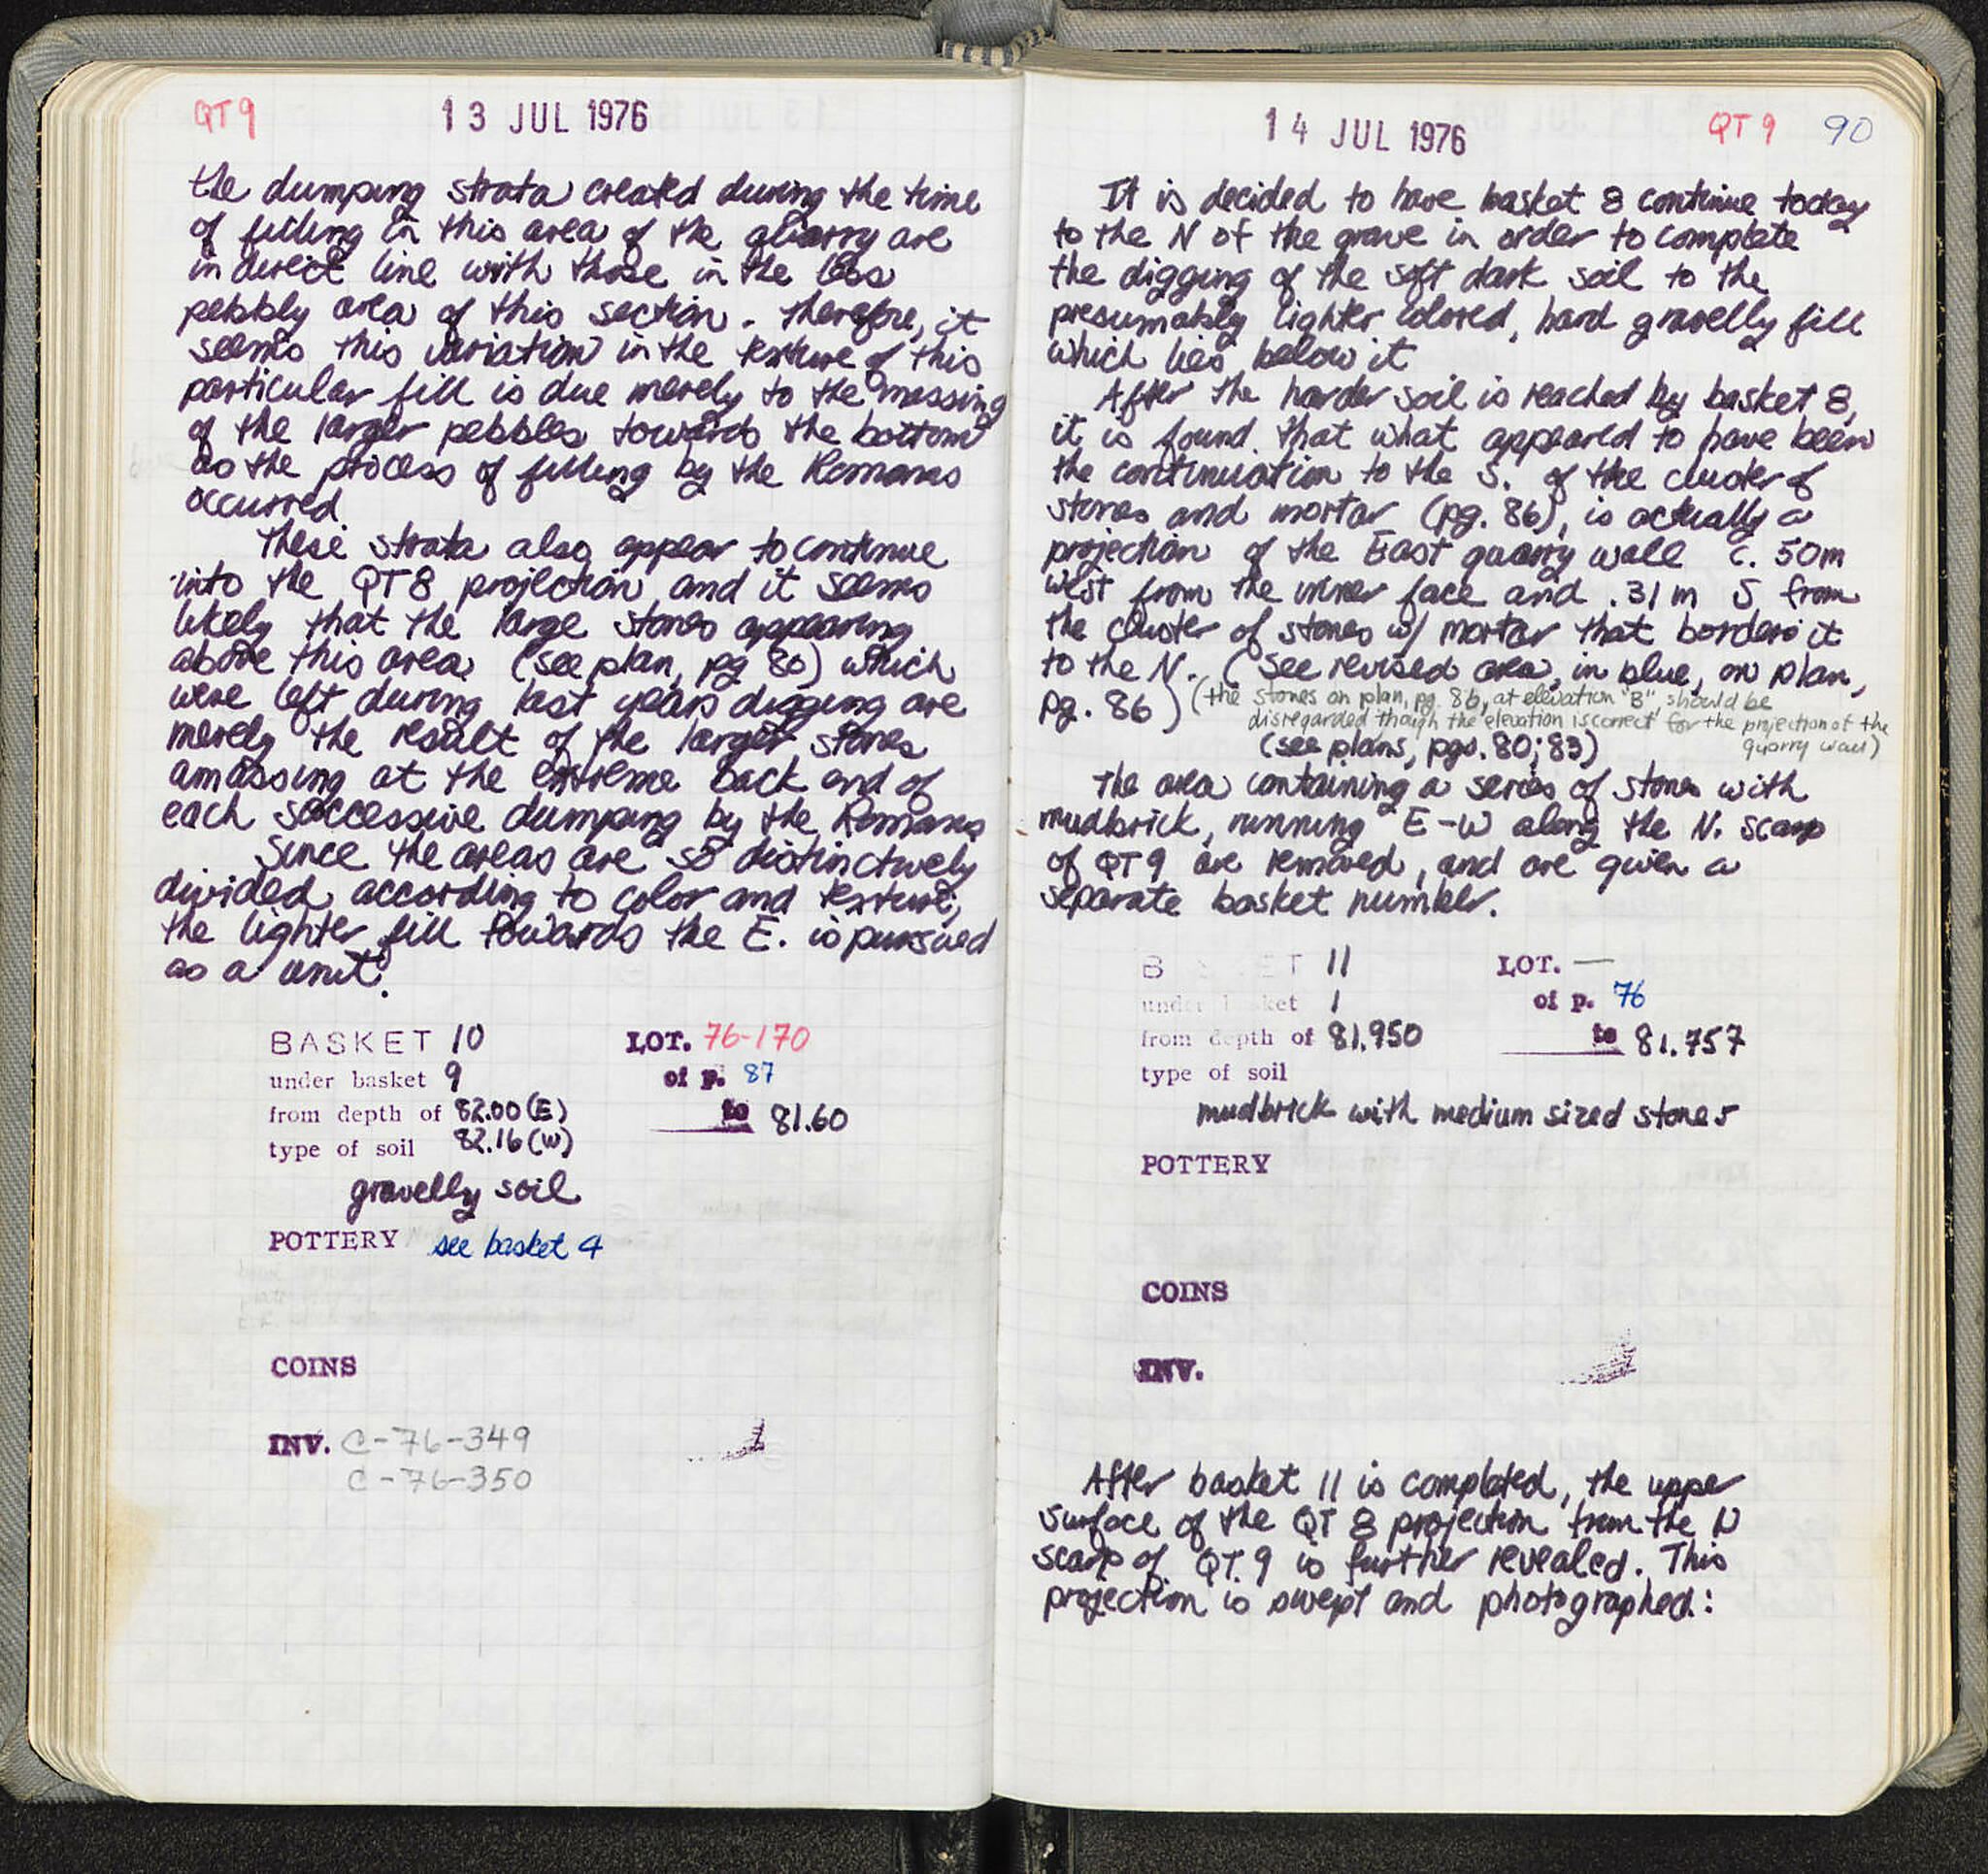 QT 9 13 JUL 1976
the dumping strata created during the time
of filling in this area of the quarry are
in direct line with those in the less
pebbly area of this section. Therefore, it
seems this variation in the texture of this
particular fill is due merely to the massing
of the larger pebbles towards the bottom
as the process of filling by the Romans
occurred.
These strata also appear to continue
into the QT8 projection and it seems
likely that the large stones appearing
above this area (see plan, pg 80) which
were left during last years digging are
merely the result of the larger stones
amassing at the extreme back end of
each successive dumping by the Romans
Since the areas are so distinctively
divided according to color and texture,
the lighter fill towards the E. is pursued
as a unit.
BASKET 10 LOT. 76-170
under basket 9 of p. 87
from depth of 82.00 (E) to 81.60
type of soil 82.16 (W)
gravelly soil
POTTERY see basket 4
COINS
INV. C-76-349
C-76-350
14 JUL 1976 QT 9 90
It is decided to have basket 8 continue today
to the N of the grave in order to complete
the digging of the soft dark soil to the
presumably lighter colored, hard gravelly fill
which lies below it
After the harder soil is reached by basket 8,
it is found that what appeared to have been
the continuation to the S. of the cluster of
stones and mortar (pg. 86), is actually a
projection of the East quarry wall c. 50m
west from the inner face and .31m S from
the cluster of stones w/ mortar that borders it
to the N. (see revised area, in blue, on plan,
pg. 86) (the stones on plan, pg. 86, at elevation "B", should be
disregarded though the elevation is correct for the projection of the
(see plans, pgs. 80; 83) quarry wall)
The area containing a series of stones with
mudbrick, running E-W along the N. scarp
of QT9 are removed, and are given a
separate basket number.
B ET 11 LOT. —
under basket 1 of p. 76
from depth of 81.950 to 81.757
type of soil
mudbrick with medium sized stones
POTTERY
COINS
INV.
After basket 11 is completed, the upper
surface of the QT 8 projection from the N
scarp of QT.9 is further revealed. This
projection is swept and photographed: